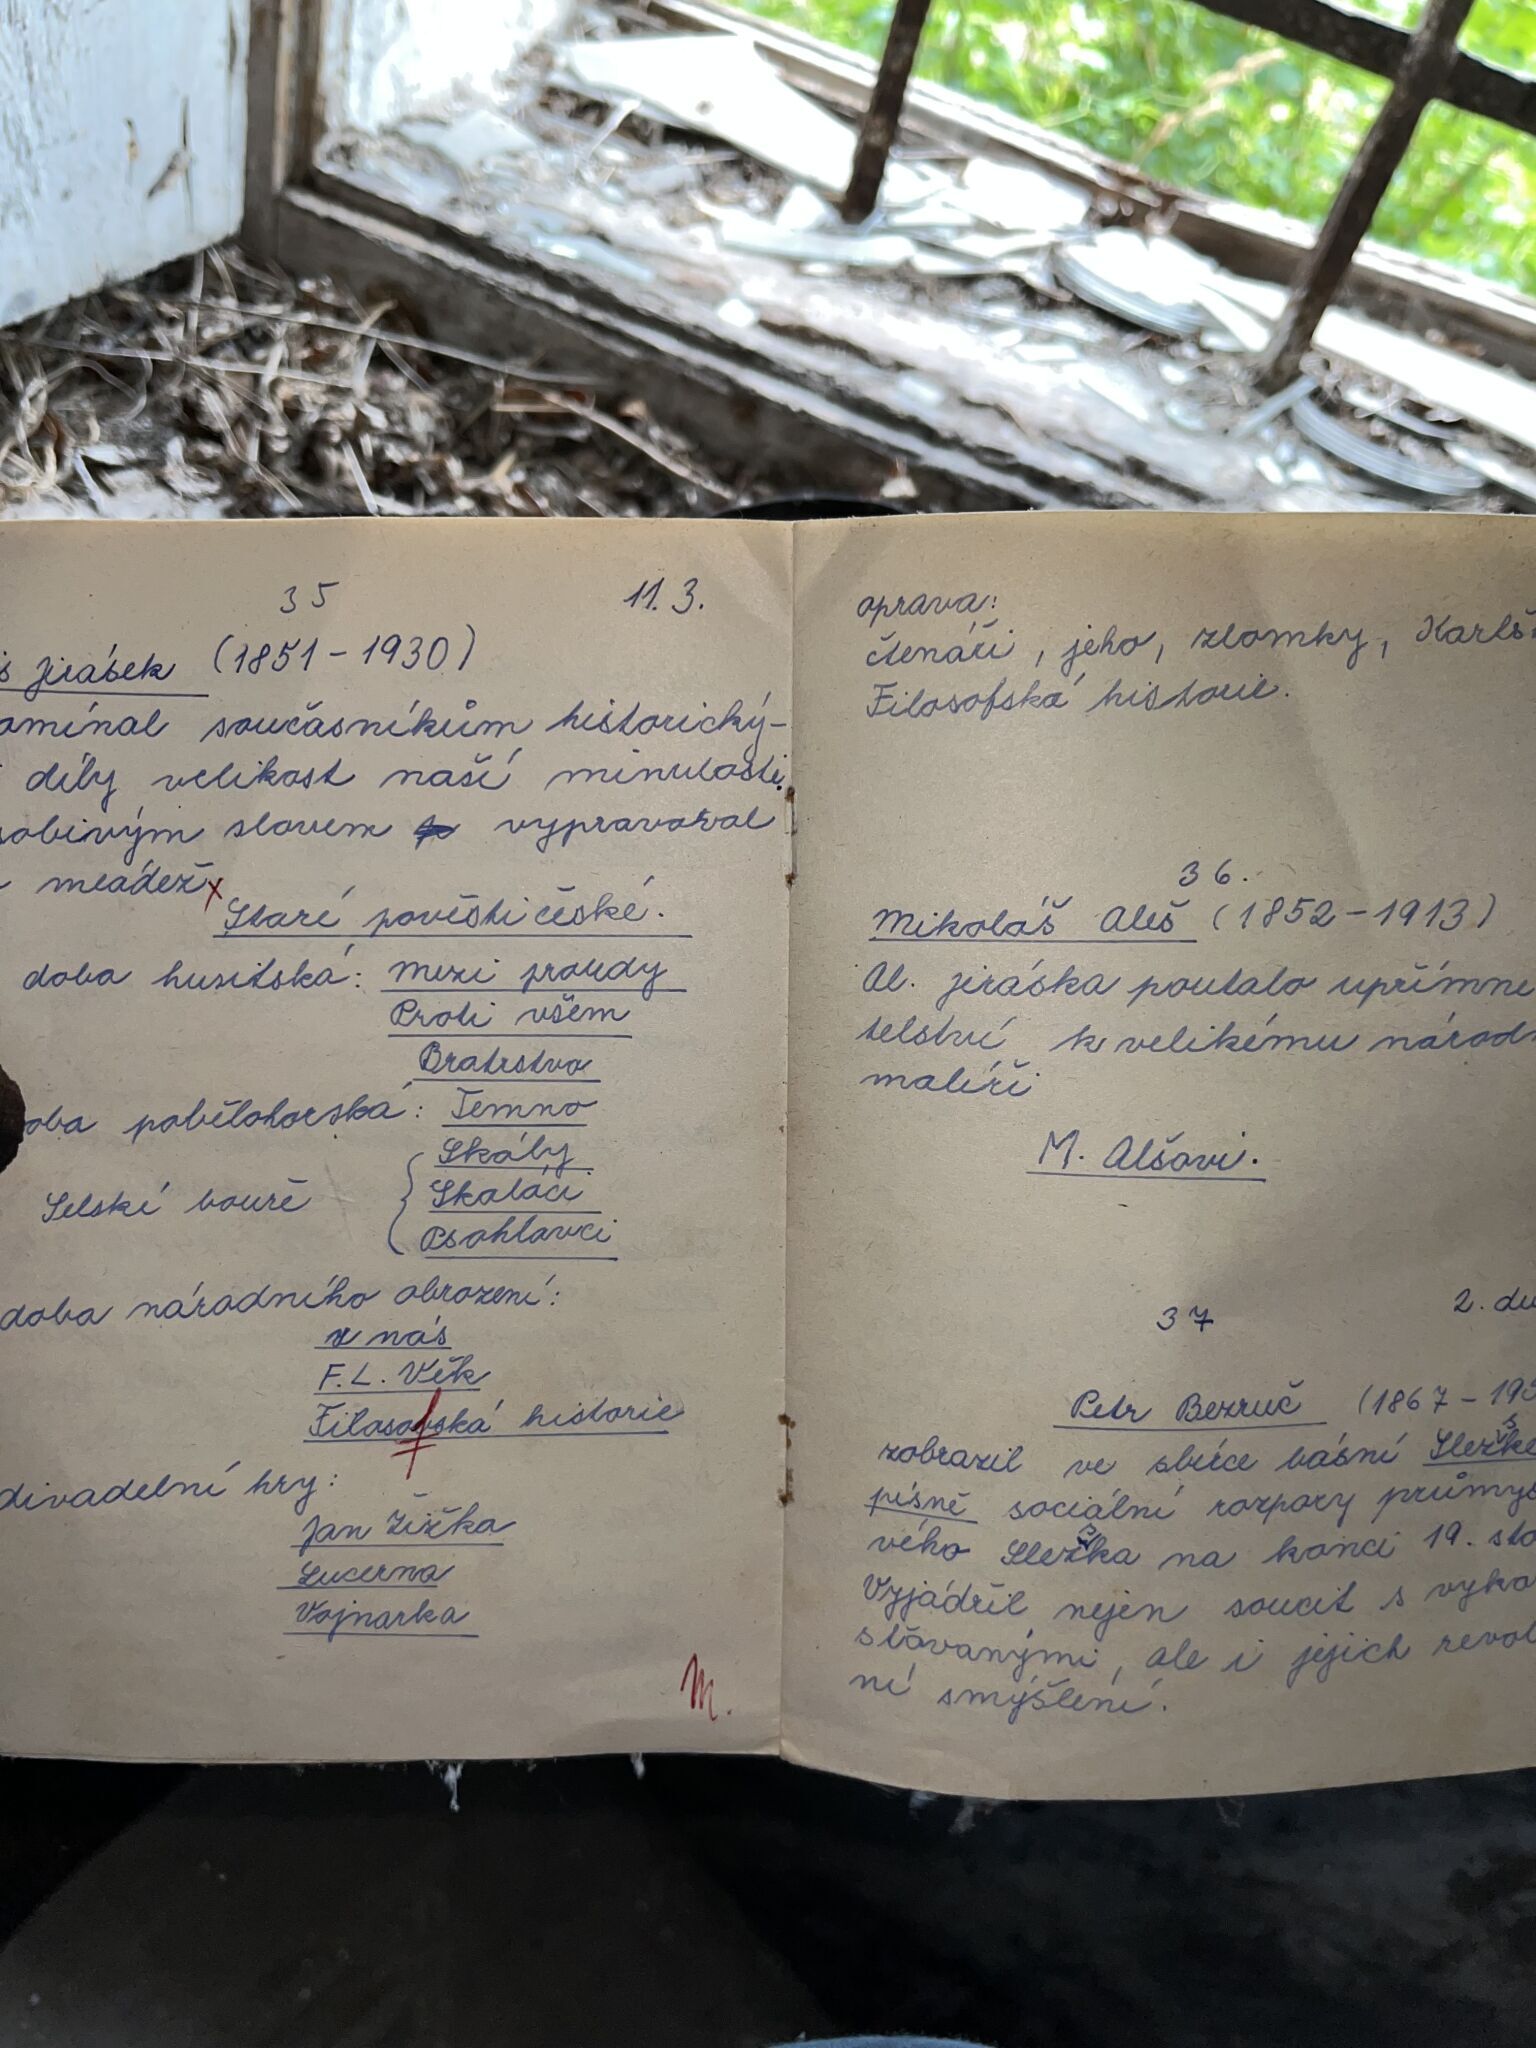 35 11.3.
š Jirásek (1851-1930)
omínal současníkům historický-
díly velikost naší minulosti.
sobivým slovem vypravoval
mládež x
Staré pověsti české.
doba husitská: Mezi proudy
Proti všem
Bratrstvo
oba pobělohorská: Temno
Skály
Selské bouře { Skaláci
Psohlavci
doba národního obrození:
U nás
F. L. Věk
Filosofská historie
divadelní hry:
Jan Žižka
Lucerna
Vojnarka
M.
oprava:
čtenáři, jeho, zlomky, Karlš
Filosofská historie.
36.
Mikoláš Aleš (1852-1913)
Al. Jiráska poutalo upřímné
telství k velikému národ
malíři
M. Alšovi.
37 2. du
Petr Bezruč (1867-195
zobrazil ve sbírce básní Slezské
písně sociální rozpory průmys
vého Slezska na konci 19. sto
Vyjádřil nejen soucit s vyko
sťovanými, ale i jejich revol
ní smýšlení.